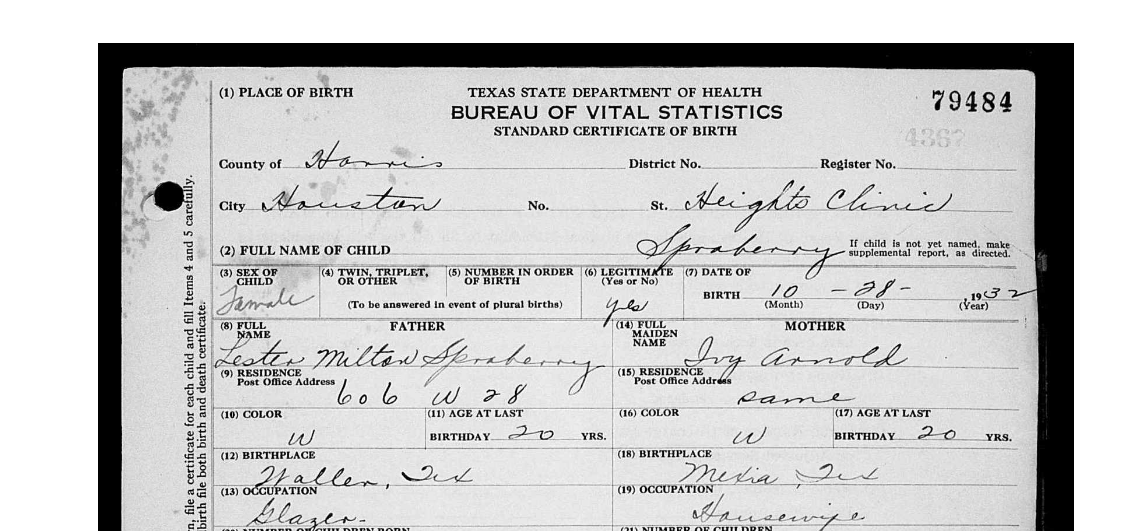 (1) PLACE OF BIRTH
TEXAS STATE DEPARTMENT OF HEALTH
BUREAU OF VITAL STATISTICS
STANDARD CERTIFICATE OF BIRTH
79484
4367
County of Harris District No. Register No.
City Houston No. St. Heights Clinic
(2) FULL NAME OF CHILD Spraberry If child is not yet named, make
supplemental report, as directed.
(3) SEX OF CHILD Female
(4) TWIN, TRIPLET, OR OTHER
(5) NUMBER IN ORDER OF BIRTH
(To be answered in event of plural births)
(6) LEGITIMATE (Yes or No) yes
(7) DATE OF BIRTH 10 - 28 - 1932
(Month) (Day) (Year)
(8) FULL NAME FATHER
Lester Milton Spraberry
(14) FULL MAIDEN NAME MOTHER
Ivy Arnold
(9) RESIDENCE
Post Office Address 606 W 28
(15) RESIDENCE
Post Office Address same
(10) COLOR W
(11) AGE AT LAST
BIRTHDAY 20 YRS.
(16) COLOR W
(17) AGE AT LAST
BIRTHDAY 20 YRS.
(12) BIRTHPLACE
Waller, Tex
(18) BIRTHPLACE
Mexia, Tex
(13) OCCUPATION
Glazer
(19) OCCUPATION
Housewife
n, file a certificate for each child and fill Items 4 and 5 carefully.
birth file both birth and death certificate.